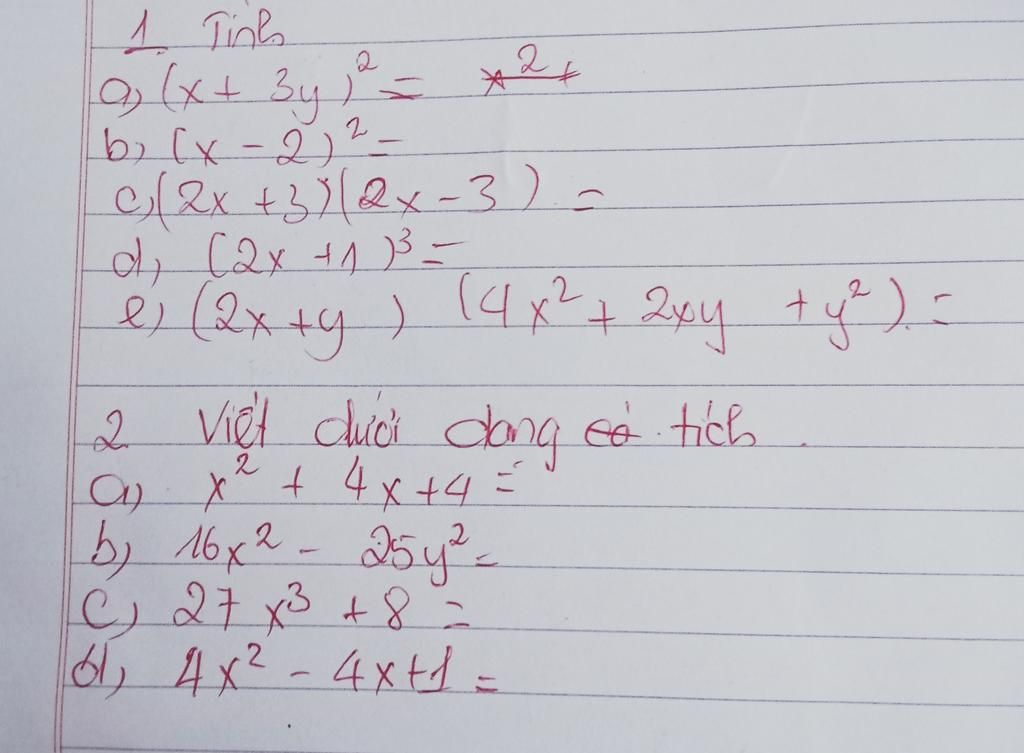 1 Tính
a, (x + 3y)² = x² +
b, (x - 2)² =
c, (2x + 3)(2x - 3) =
d, (2x + 1)³ =
e, (2x + y) (4x² + 2xy + y²). =
2 Viết dưới dạng có tích.
a, x² + 4x + 4 =
b, 16x² - 25y² =
c, 27x³ + 8 =
d, 4x² - 4x + 1 =